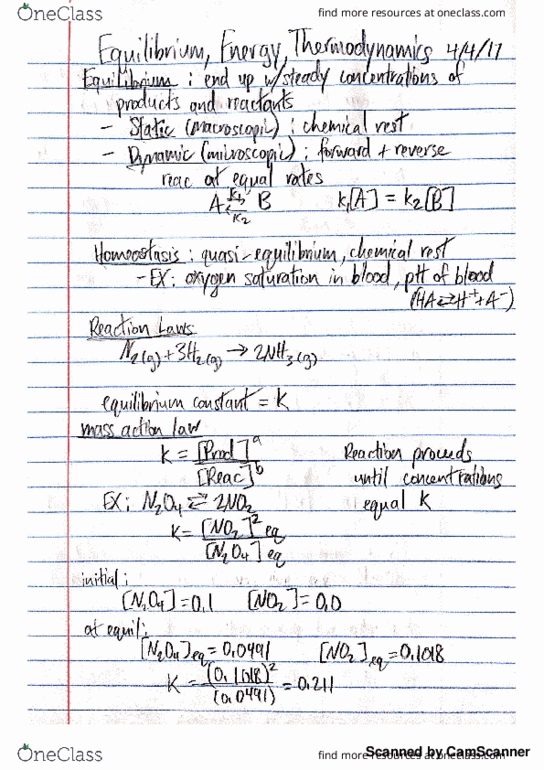 OneClass
find more resources at oneclass.com
Equilibrium, Energy, Thermodynamics 4/4/17
Equilibrium : end up w/steady concentrations of
products and reactants
- Static (macroscopic) : chemical rest
- Dynamic (microscopic) : forward + reverse
reac at equal rates
A ⇄ B k₁[A] = k₂[B]
k₁
k₂
Homeostasis : quasi-equilibrium, chemical rest
-EX: oxygen saturation in blood, pH of blood
(HA⇄H⁺+A⁻)
Reaction Laws
N₂(g)+3H₂(g) → 2NH₃(g)
equilibrium constant = K
mass action law
K = [Prod]ᵃ / [Reac]ᵇ Reaction proceeds
until concentrations
equal K
EX: N₂O₄ ⇄ 2NO₂
K = [NO₂]² eq / [N₂O₄] eq
initial:
[N₂O₄]=0.1 [NO₂]=0.0
at equil:
[N₂O₄]eq = 0.0491 [NO₂]eq=0.1018
K = (0.1018)² / (0.0491) = 0.211
OneClass
find more resources at oneclass.com
Scanned by CamScanner